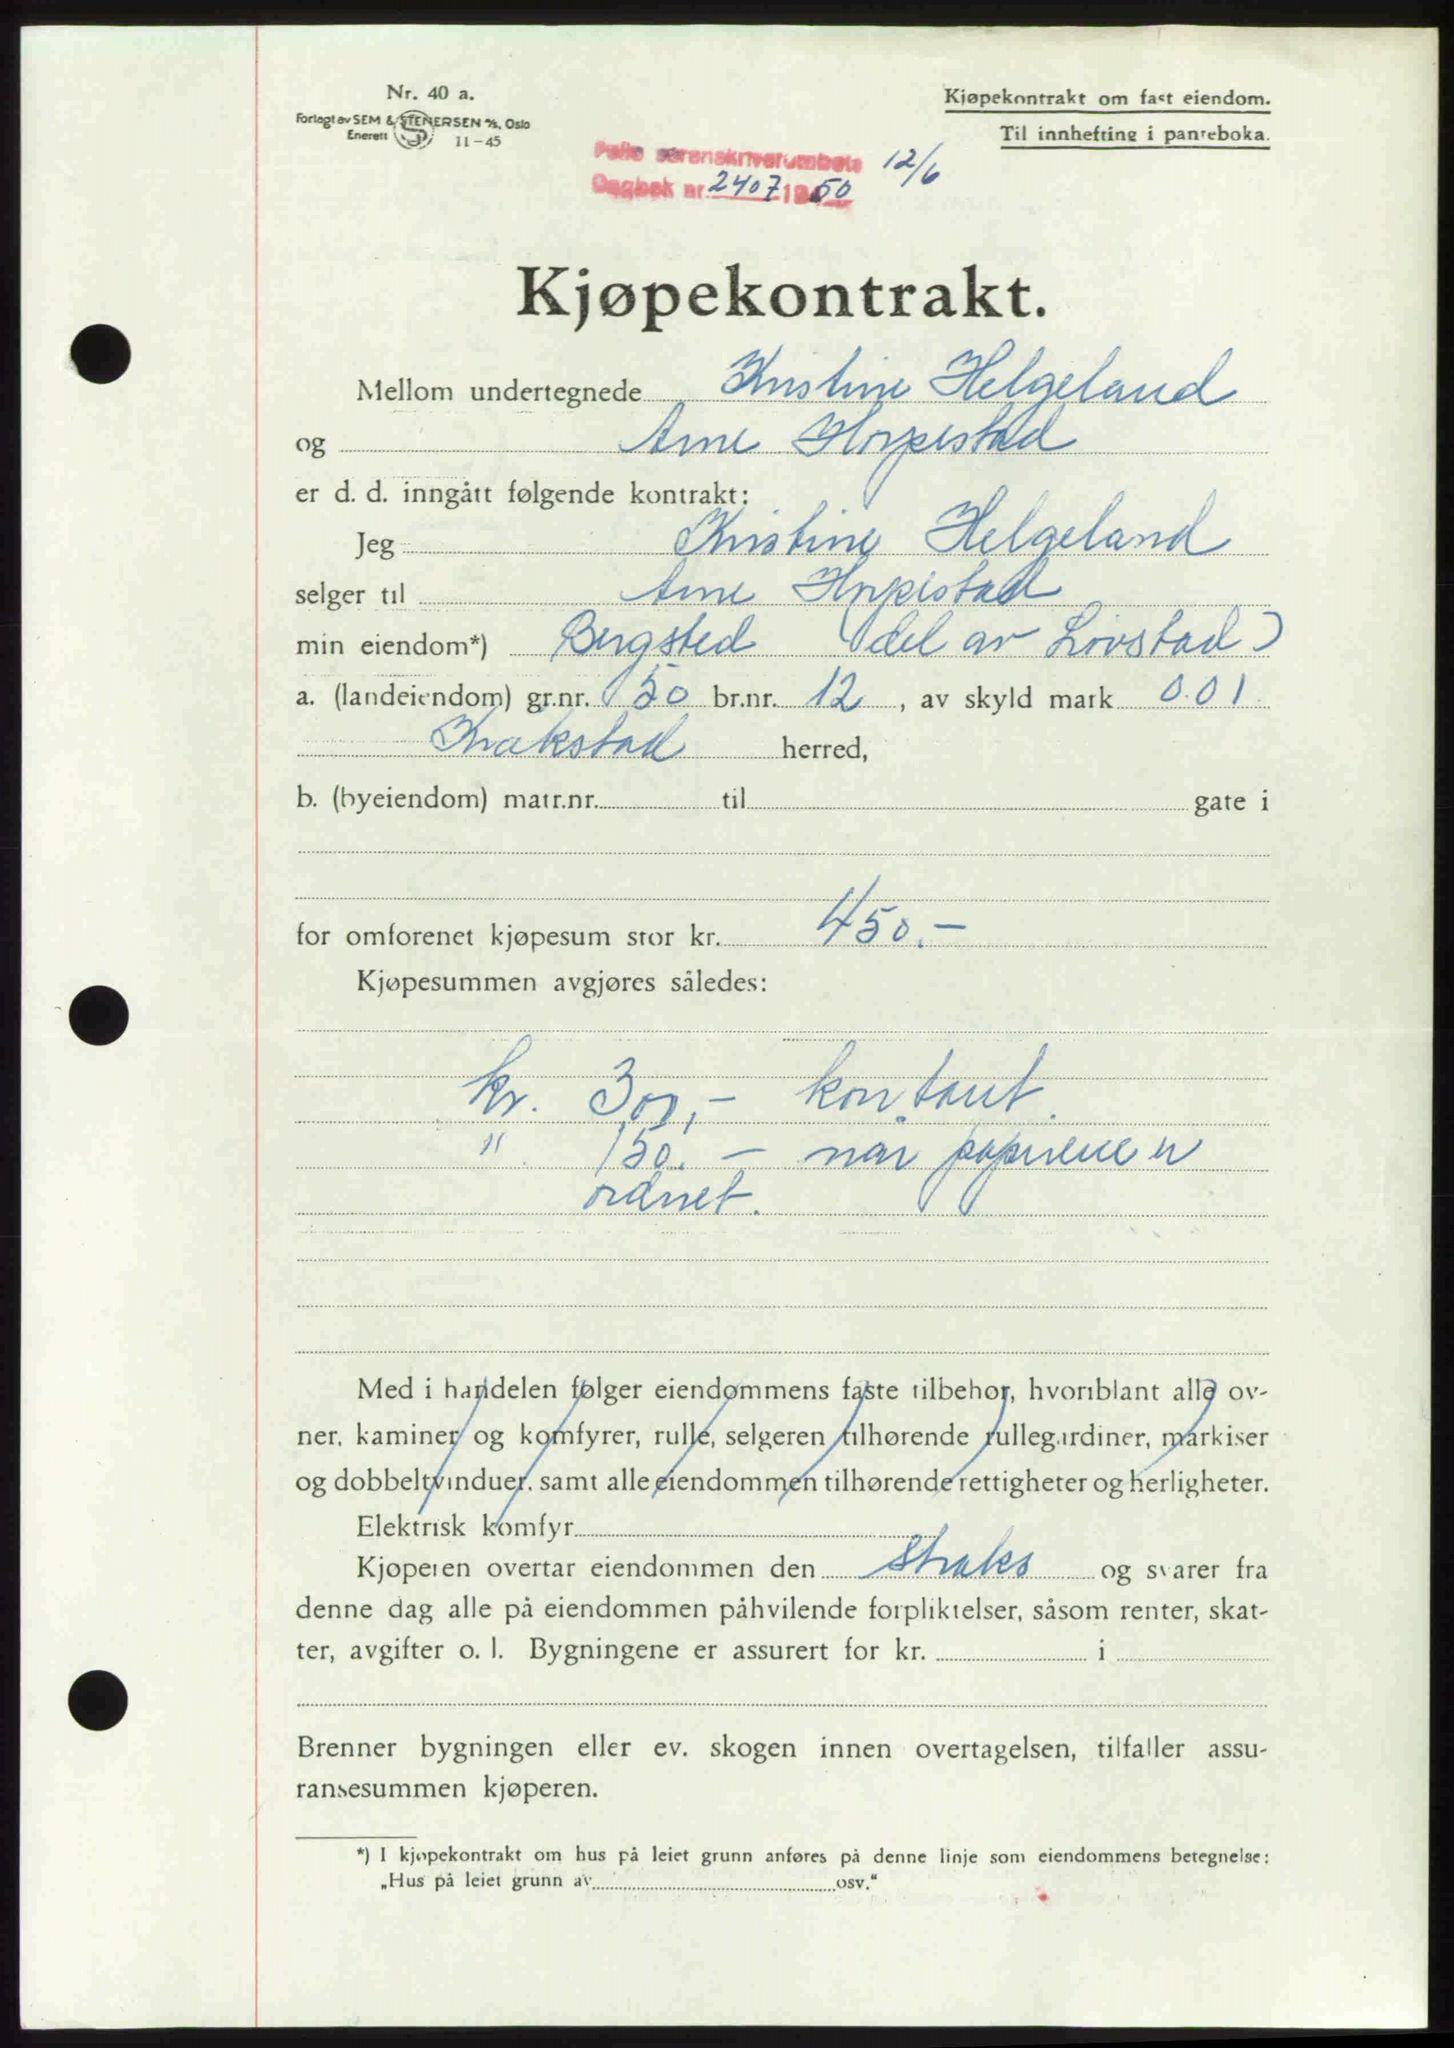 Nr. 40 a.
Forlagt av SEM & STENERSEN A/S, Oslo
Enerett 11-45
Kjøpekontrakt om fast eiendom.
Til innhefting i panteboka.
Follo sorenskriverembete 12/6
Dagbok nr. 2407 1950
Kjøpekontrakt.
Mellom undertegnede Kristine Helgeland
og Arne Horpestad
er d. d. inngått følgende kontrakt:
Jeg Kristine Helgeland
selger til Arne Horpestad
min eiendom*) Bergsted (del av Lövstad)
a. (landeiendom) gr.nr. 50 br.nr. 12, av skyld mark 0.01
Kråkstad herred,
b. (byeiendom) matr.nr. til gate i
for omforenet kjøpesum stor kr. 450.-
Kjøpesummen avgjøres således:
kr. 300,- kontant.
" 150.- når papirene er
ordnet.
Med i handelen følger eiendommens faste tilbehør, hvoriblant alle ov-
ner, kaminer og komfyrer, rulle, selgeren tilhørende rullegardiner, markiser
og dobbeltvinduer, samt alle eiendommen tilhørende rettigheter og herligheter.
Elektrisk komfyr
Kjøperen overtar eiendommen den straks og svarer fra
denne dag alle på eiendommen påhvilende forpliktelser, såsom renter, skat-
ter, avgifter o. l. Bygningene er assurert for kr. i
Brenner bygningen eller ev. skogen innen overtagelsen, tilfaller assu-
ransesummen kjøperen.
*) I kjøpekontrakt om hus på leiet grunn anføres på denne linje som eiendommens betegnelse:
„Hus på leiet grunn av osv."